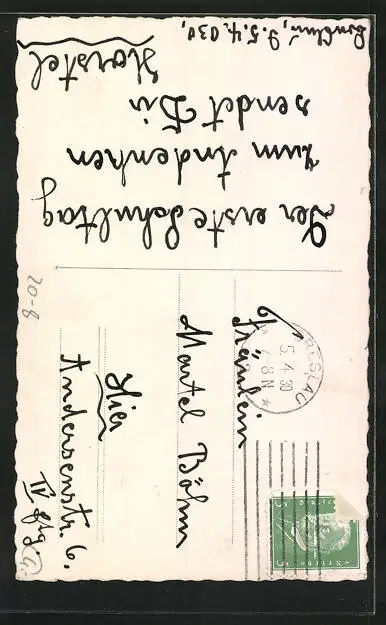 Breslau, d. 5.4.030.
Der erste Schultag
zum Andenken
sendet Dir
Horstel
BRESLAU
5.4.30
-8 N
Fräulein
Martel Böhm
Hier
Andersenstr. 6.
IV Etg.
20-8